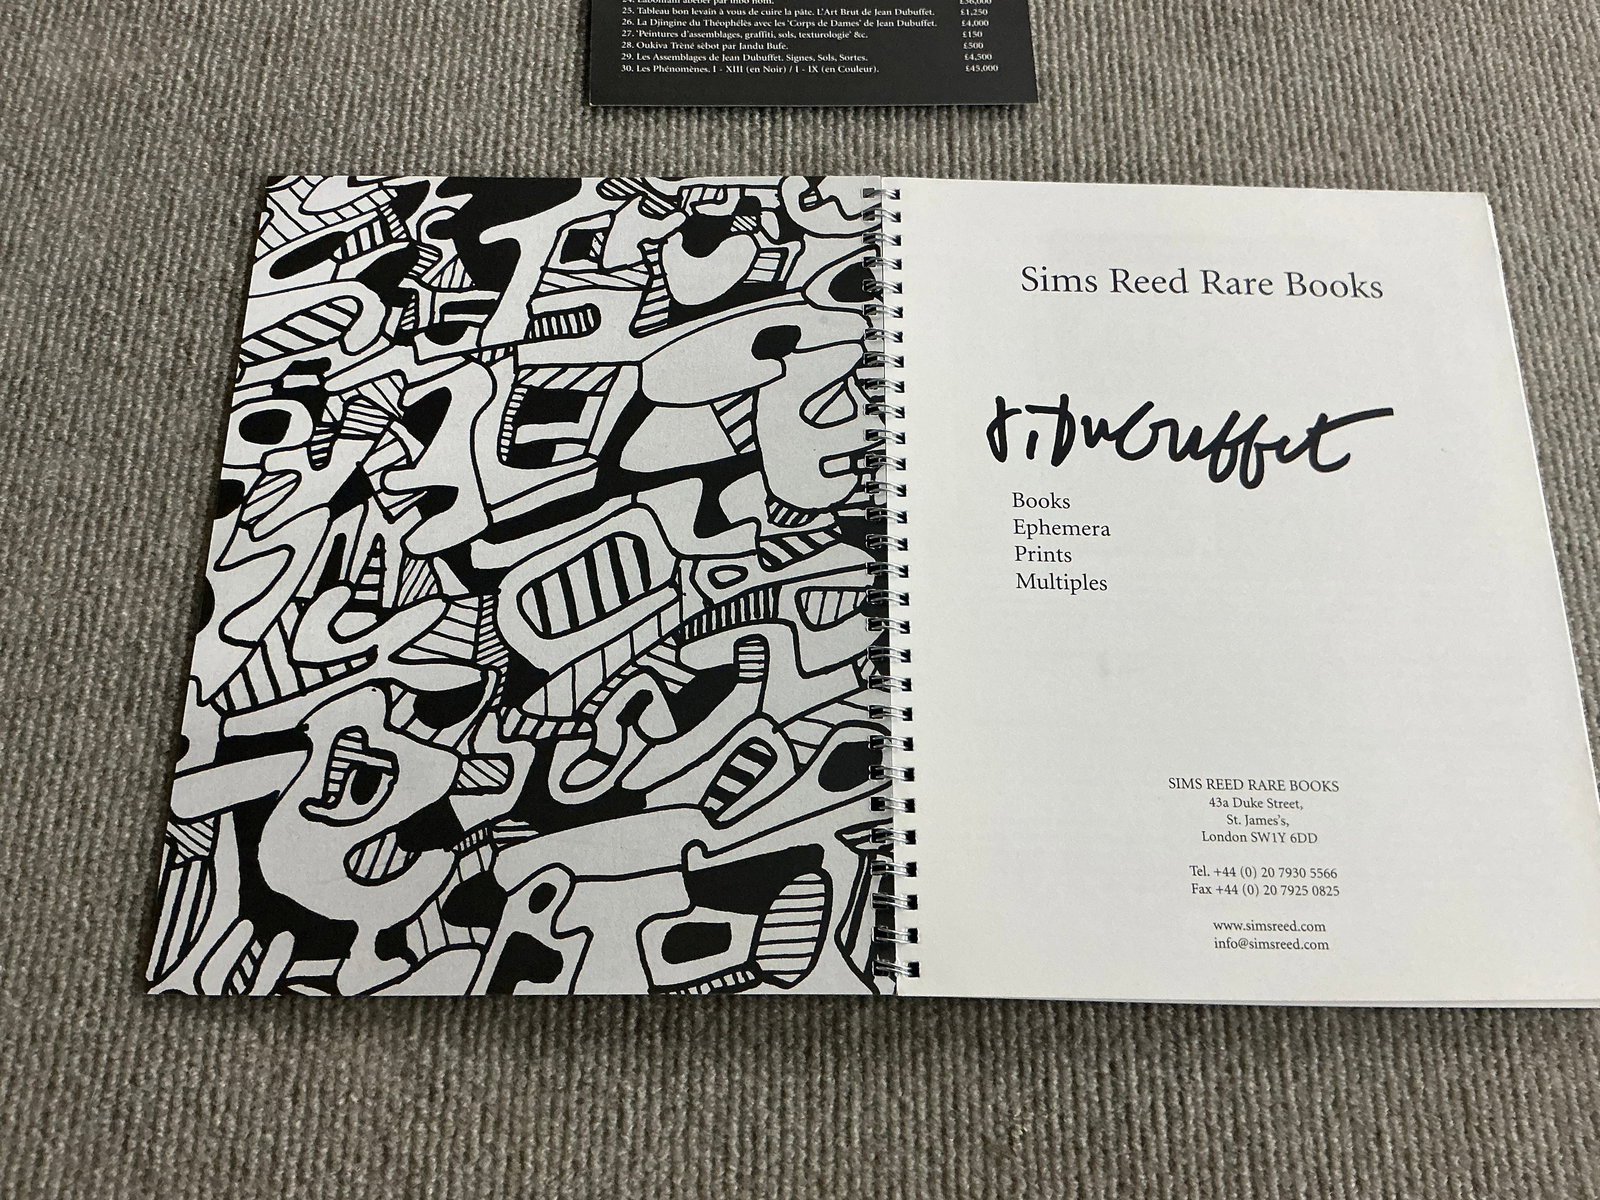 25. Tableau bon levain à vous de cuire la pâte. L'Art Brut de Jean Dubuffet. £1,250
26. La Djingine du Théophélès avec les 'Corps de Dames' de Jean Dubuffet. £4,000
27. 'Peintures d'assemblages, graffiti, sols, texturologie' &c. £150
28. Oukiva Trènè sèbot par Jandu Bufe. £500
29. Les Assemblages de Jean Dubuffet. Signes, Sols, Sortes. £4,500
30. Les Phénomènes. I - XIII (en Noir) / I - IX (en Couleur). £45,000
Sims Reed Rare Books
J. Dubuffet
Books
Ephemera
Prints
Multiples
SIMS REED RARE BOOKS
43a Duke Street,
St. James's,
London SW1Y 6DD
Tel. +44 (0) 20 7930 5566
Fax +44 (0) 20 7925 0825
www.simsreed.com
info@simsreed.com